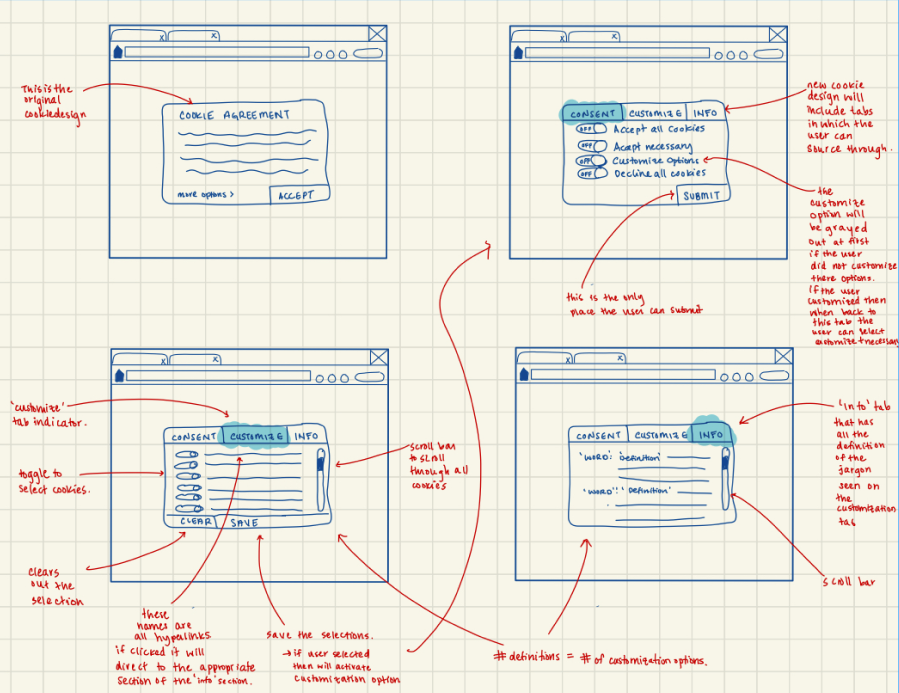 x
x
This is the
original
cookie design
COOKIE AGREEMENT
more options >
ACCEPT
x
CONSENT
CUSTOMIZE
INFO
OFF
Accept all cookies
OFF
Accept necessary
OFF
Customize Options
OFF
Decline all cookies
SUBMIT
new cookie
design will
include tabs
in which the
user can
source through.
the
customize
option will
be grayed
out at first
if the user
did not customize
there options.
if the user
customized then
when back to
this tab the
user can select
customize + necessary
this is the only
place the user can submit
x
x
'customize'
tab indicator.
toggle to
select cookies.
CONSENT
CUSTOMIZE
INFO
CLEAR
SAVE
scroll bar
to scroll
through all
cookies
clears
out the
selection
these
names are
all hypalinks
if clicked it will
direct to the appropriate
section of the 'info' section.
save the selections.
→ if user selected
then will activate
customization option
x
CONSENT
CUSTOMIZE
INFO
'WORD': 'Definition'
'WORD': 'Definition'
'Info' tab
that has
all the
definition
of the
jargon
seen on
the
customization
tab
scroll bar
# definitions = # of customization options.